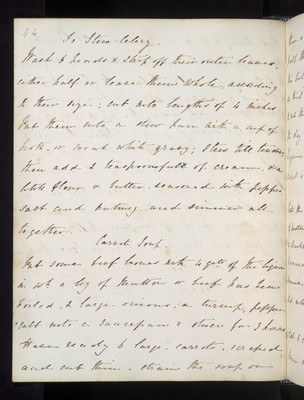 44
To Stew Celery.
Wash 6 heads & strip off their outer leaves,
either half or leave them whole, according
to their size; cut into lengths of 4 inches.
Put them into a stew pan with a cup of
broth, or weak white gravy; stew till tender,
then add 2 teaspoonsfull of cream, & a
little flour & butter seasoned with pepper
salt and nutmeg and simmer all
together.
Carrot Soup.
Put some beef bones with 4 qts of the liquor
in wh a leg of Mutton or beef has been
boiled, 2 large onions, a turnip, pepper
salt into a saucepan & stew for 3 hours
Have ready 6 large carrots, scraped
and cut thin. strain the soup on